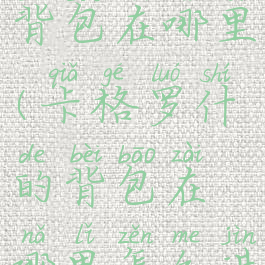 背包在哪里
qiǎ gé luó shí
(卡格罗什
de bèi bāo zài
的背包在
nǎ lǐ zěn me jìn